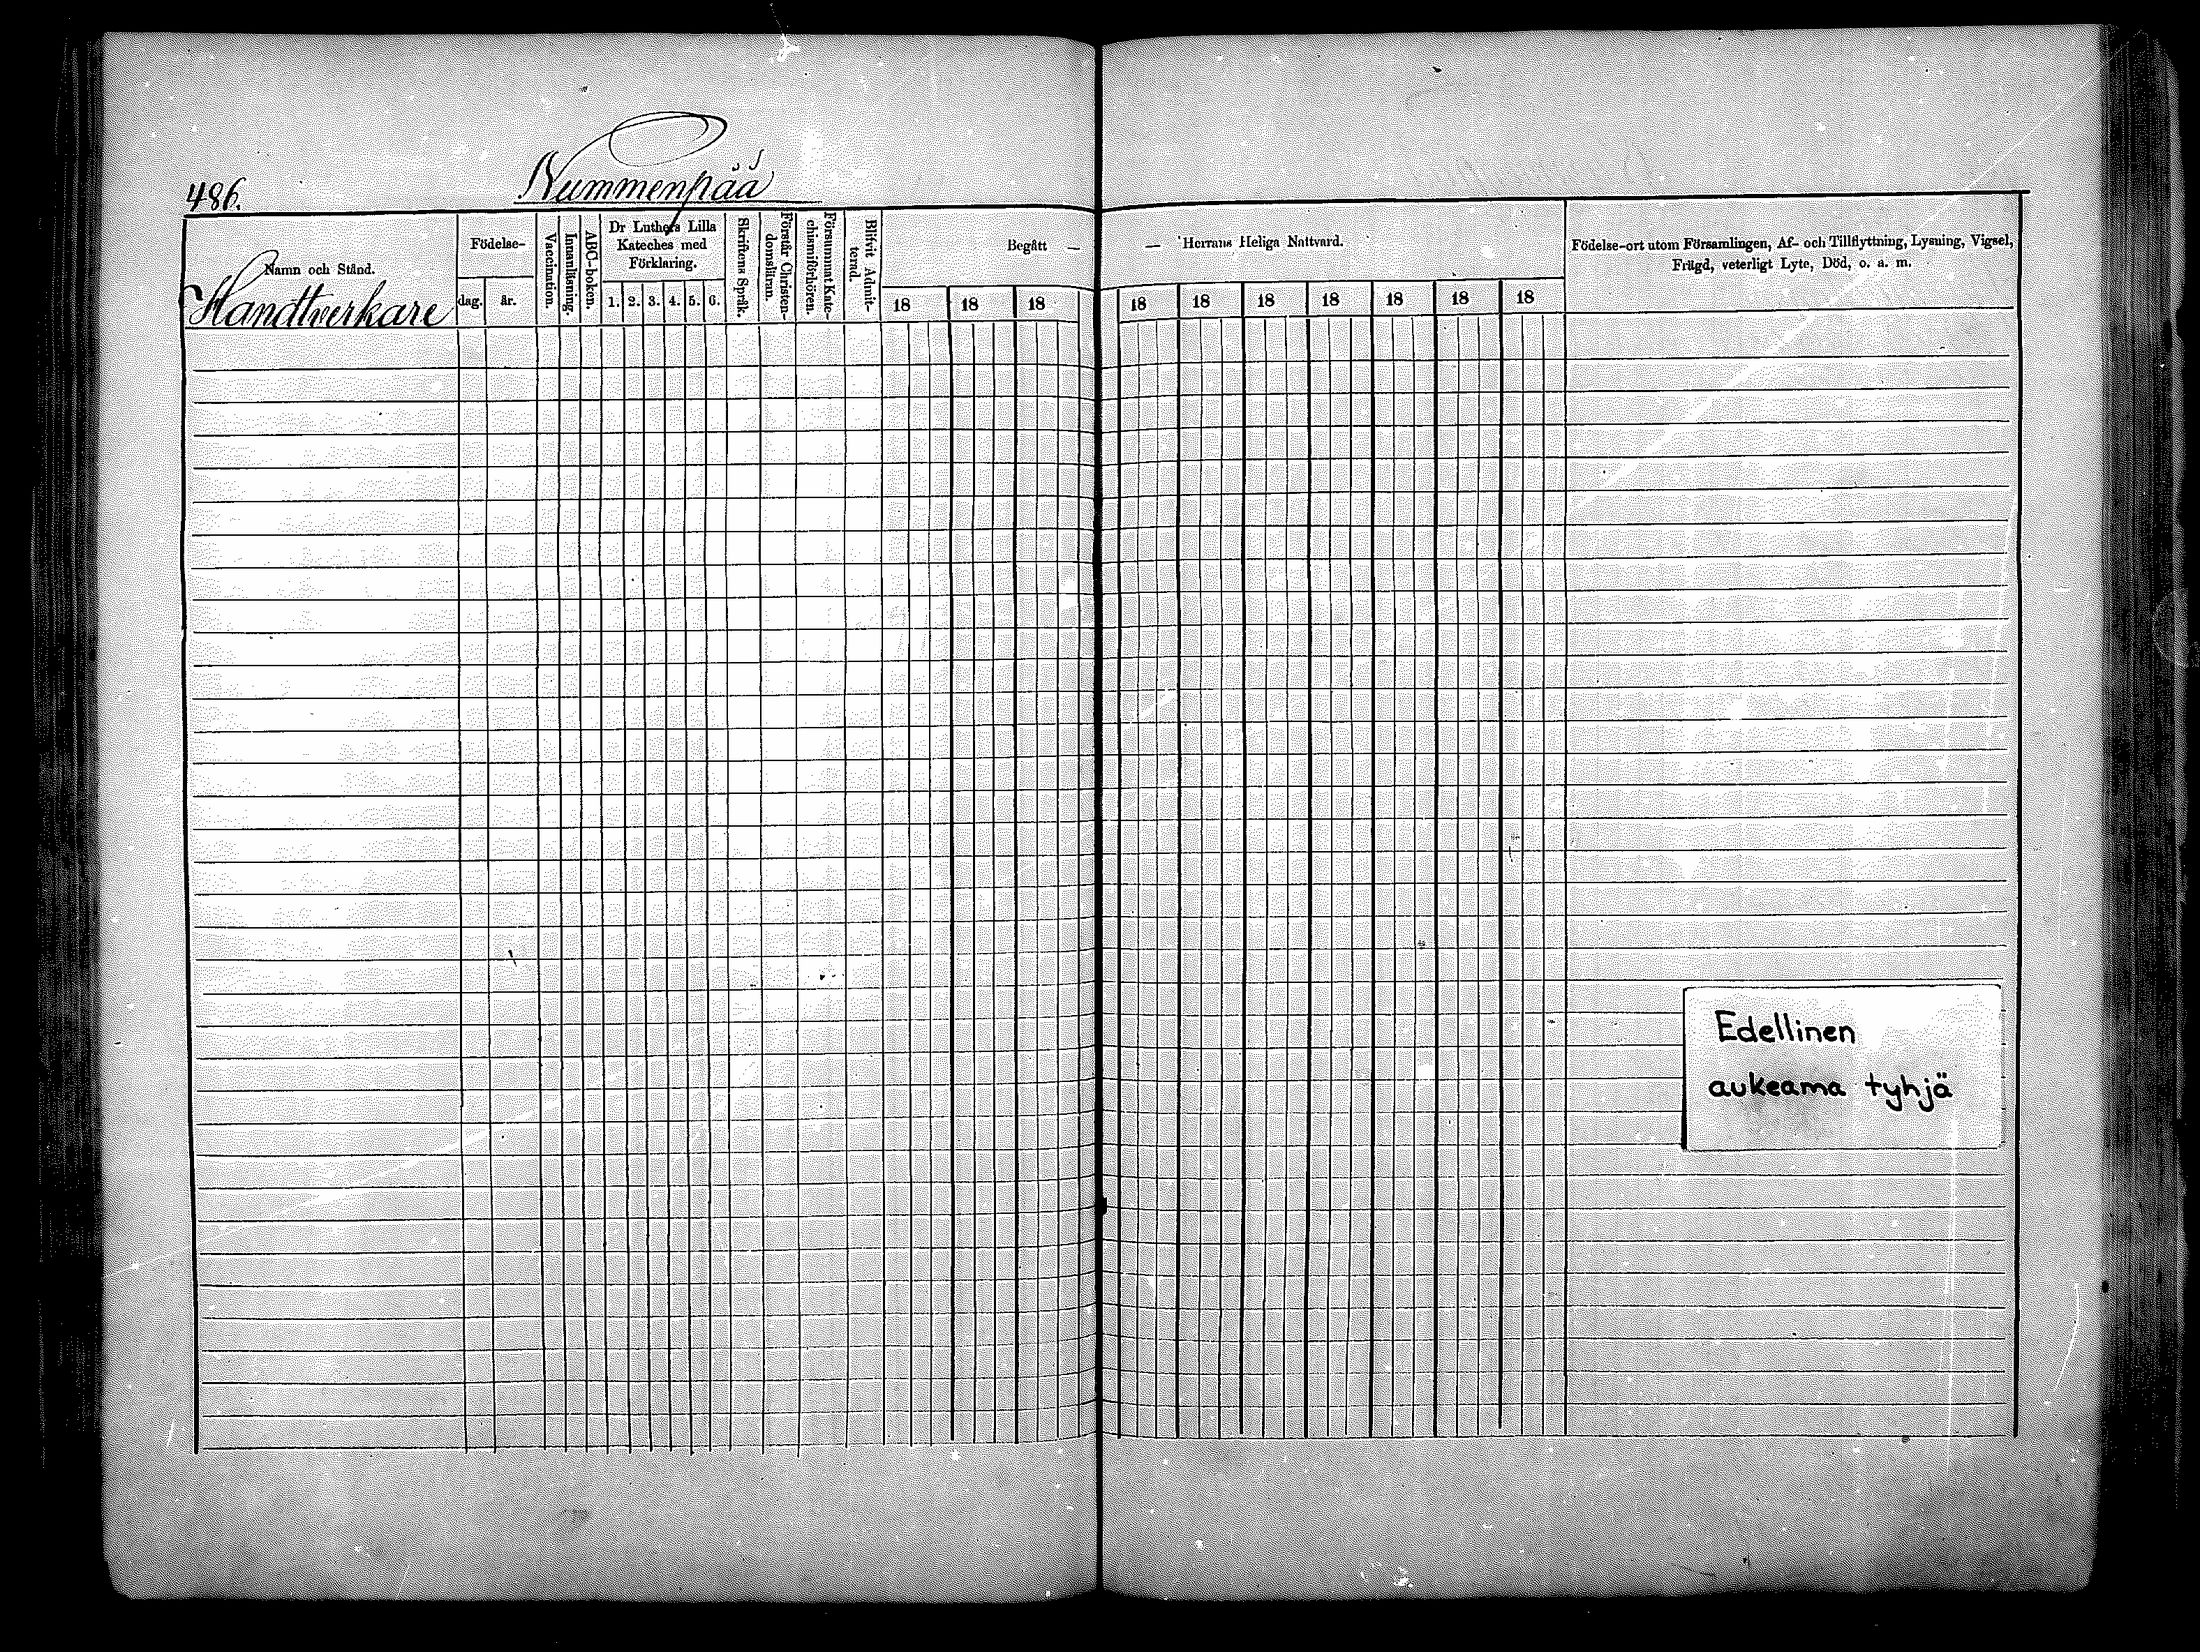 486.
Nummenpää
Namn och Stånd.
Handtverkare
Födelse-
dag.
år.
Vaccination.
Innanläsning.
ABC-boken.
Dr Luthers Lilla
Kateches med
Förklaring.
1. 2. 3. 4. 5. 6.
Skriftens Språk.
Förstår Christen-
domsläran.
Försummat Kate-
chismiförhören.
Blifvit Admit-
terad.
Begått —
18 18 18
— Herrans Heliga Nattvard.
18 18 18 18 18 18 18
Födelse-ort utom Församlingen, Af- och Tillflyttning, Lysning, Vigsel,
Frägd, veterligt Lyte, Död, o. a. m.
Edellinen
aukeama tyhjä